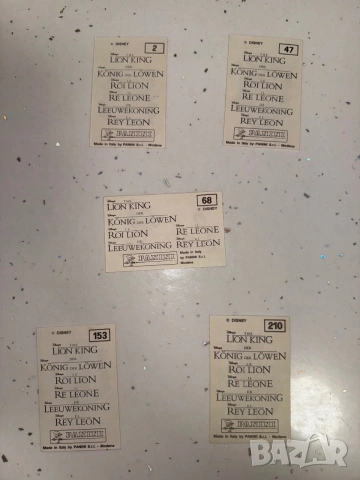 © DISNEY
2
Disney's THE
LION KING
Disney's DER
KÖNIG DER LÖWEN
Disney's LE
ROI LION
Disney's IL
RE LEONE
Disney's DE
LEEUWEKONING
Disney's EL
REY LEON
PANINI
Made in Italy by PANINI S.r.l. - Modena
© DISNEY
47
Disney's THE
LION KING
Disney's DER
KÖNIG DER LÖWEN
Disney's LE
ROI LION
Disney's IL
RE LEONE
Disney's DE
LEEUWEKONING
Disney's EL
REY LEON
PANINI
Made in Italy by PANINI S.r.l. - Modena
68
© DISNEY
Disney's THE
LION KING
Disney's DER
KÖNIG DER LÖWEN
Disney's LE
ROI LION
Disney's IL
RE LEONE
Disney's DE
LEEUWEKONING
Disney's EL
REY LEON
PANINI
Made in Italy
by PANINI S.r.l.
Modena
© DISNEY
153
Disney's THE
LION KING
Disney's DER
KÖNIG DER LÖWEN
Disney's LE
ROI LION
Disney's IL
RE LEONE
Disney's DE
LEEUWEKONING
Disney's EL
REY LEON
PANINI
Made in Italy by PANINI S.r.l. - Modena
© DISNEY
210
Disney's THE
LION KING
Disney's DER
KÖNIG DER LÖWEN
Disney's LE
ROI LION
Disney's IL
RE LEONE
Disney's DE
LEEUWEKONING
Disney's EL
REY LEON
PANINI
Made in Italy by PANINI S.r.l. - Modena
BAZAR
bg